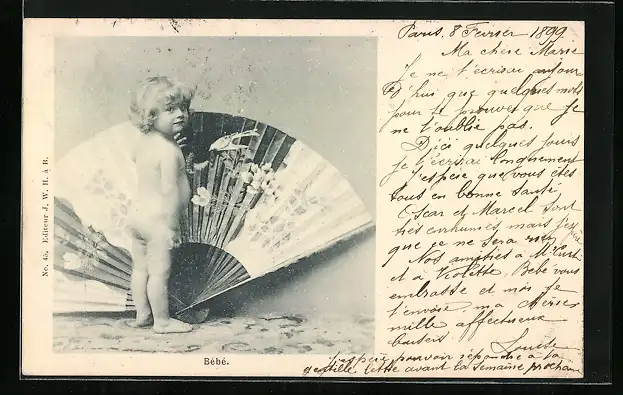 Paris, 8 Fevrier 1899
Ma chère Marie
Je ne t'écrirai aujour
d'hui que quelques mots
pour te prouver que je
ne t'oublie pas.
D'ici quelques jours
je t'écrirai longuement
J'espère que vous êtes
tous en bonne santé
Oscar et Marcel sont
très enrhumés, mais j'espère
que je ne sera rien
Nos amitiés à M.
et à Violette, Bébé vous
embrasse et moi je
t'envoie, ma
mille affectueux
baisers
Louise
J'espère pouvoir répondre à ta
gentille lettre avant la semaine prochaine
No. 45, Editeur J. W. H. à B.
Bébé.